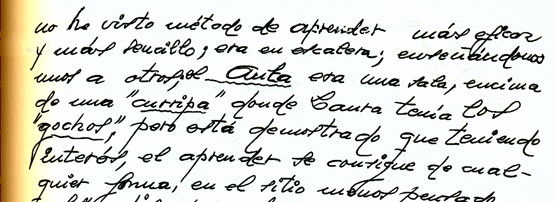 no he visto método de aprender más eficaz
y más sencillo; era en escalera; enseñándonos
unos a otros, el Aula era una sala, encima
de una "curripa" donde Laura tenía los
"gochos", pero está demostrado que teniendo
interés, el aprender se consigue de cual-
quier forma, en el sitio menos pensado